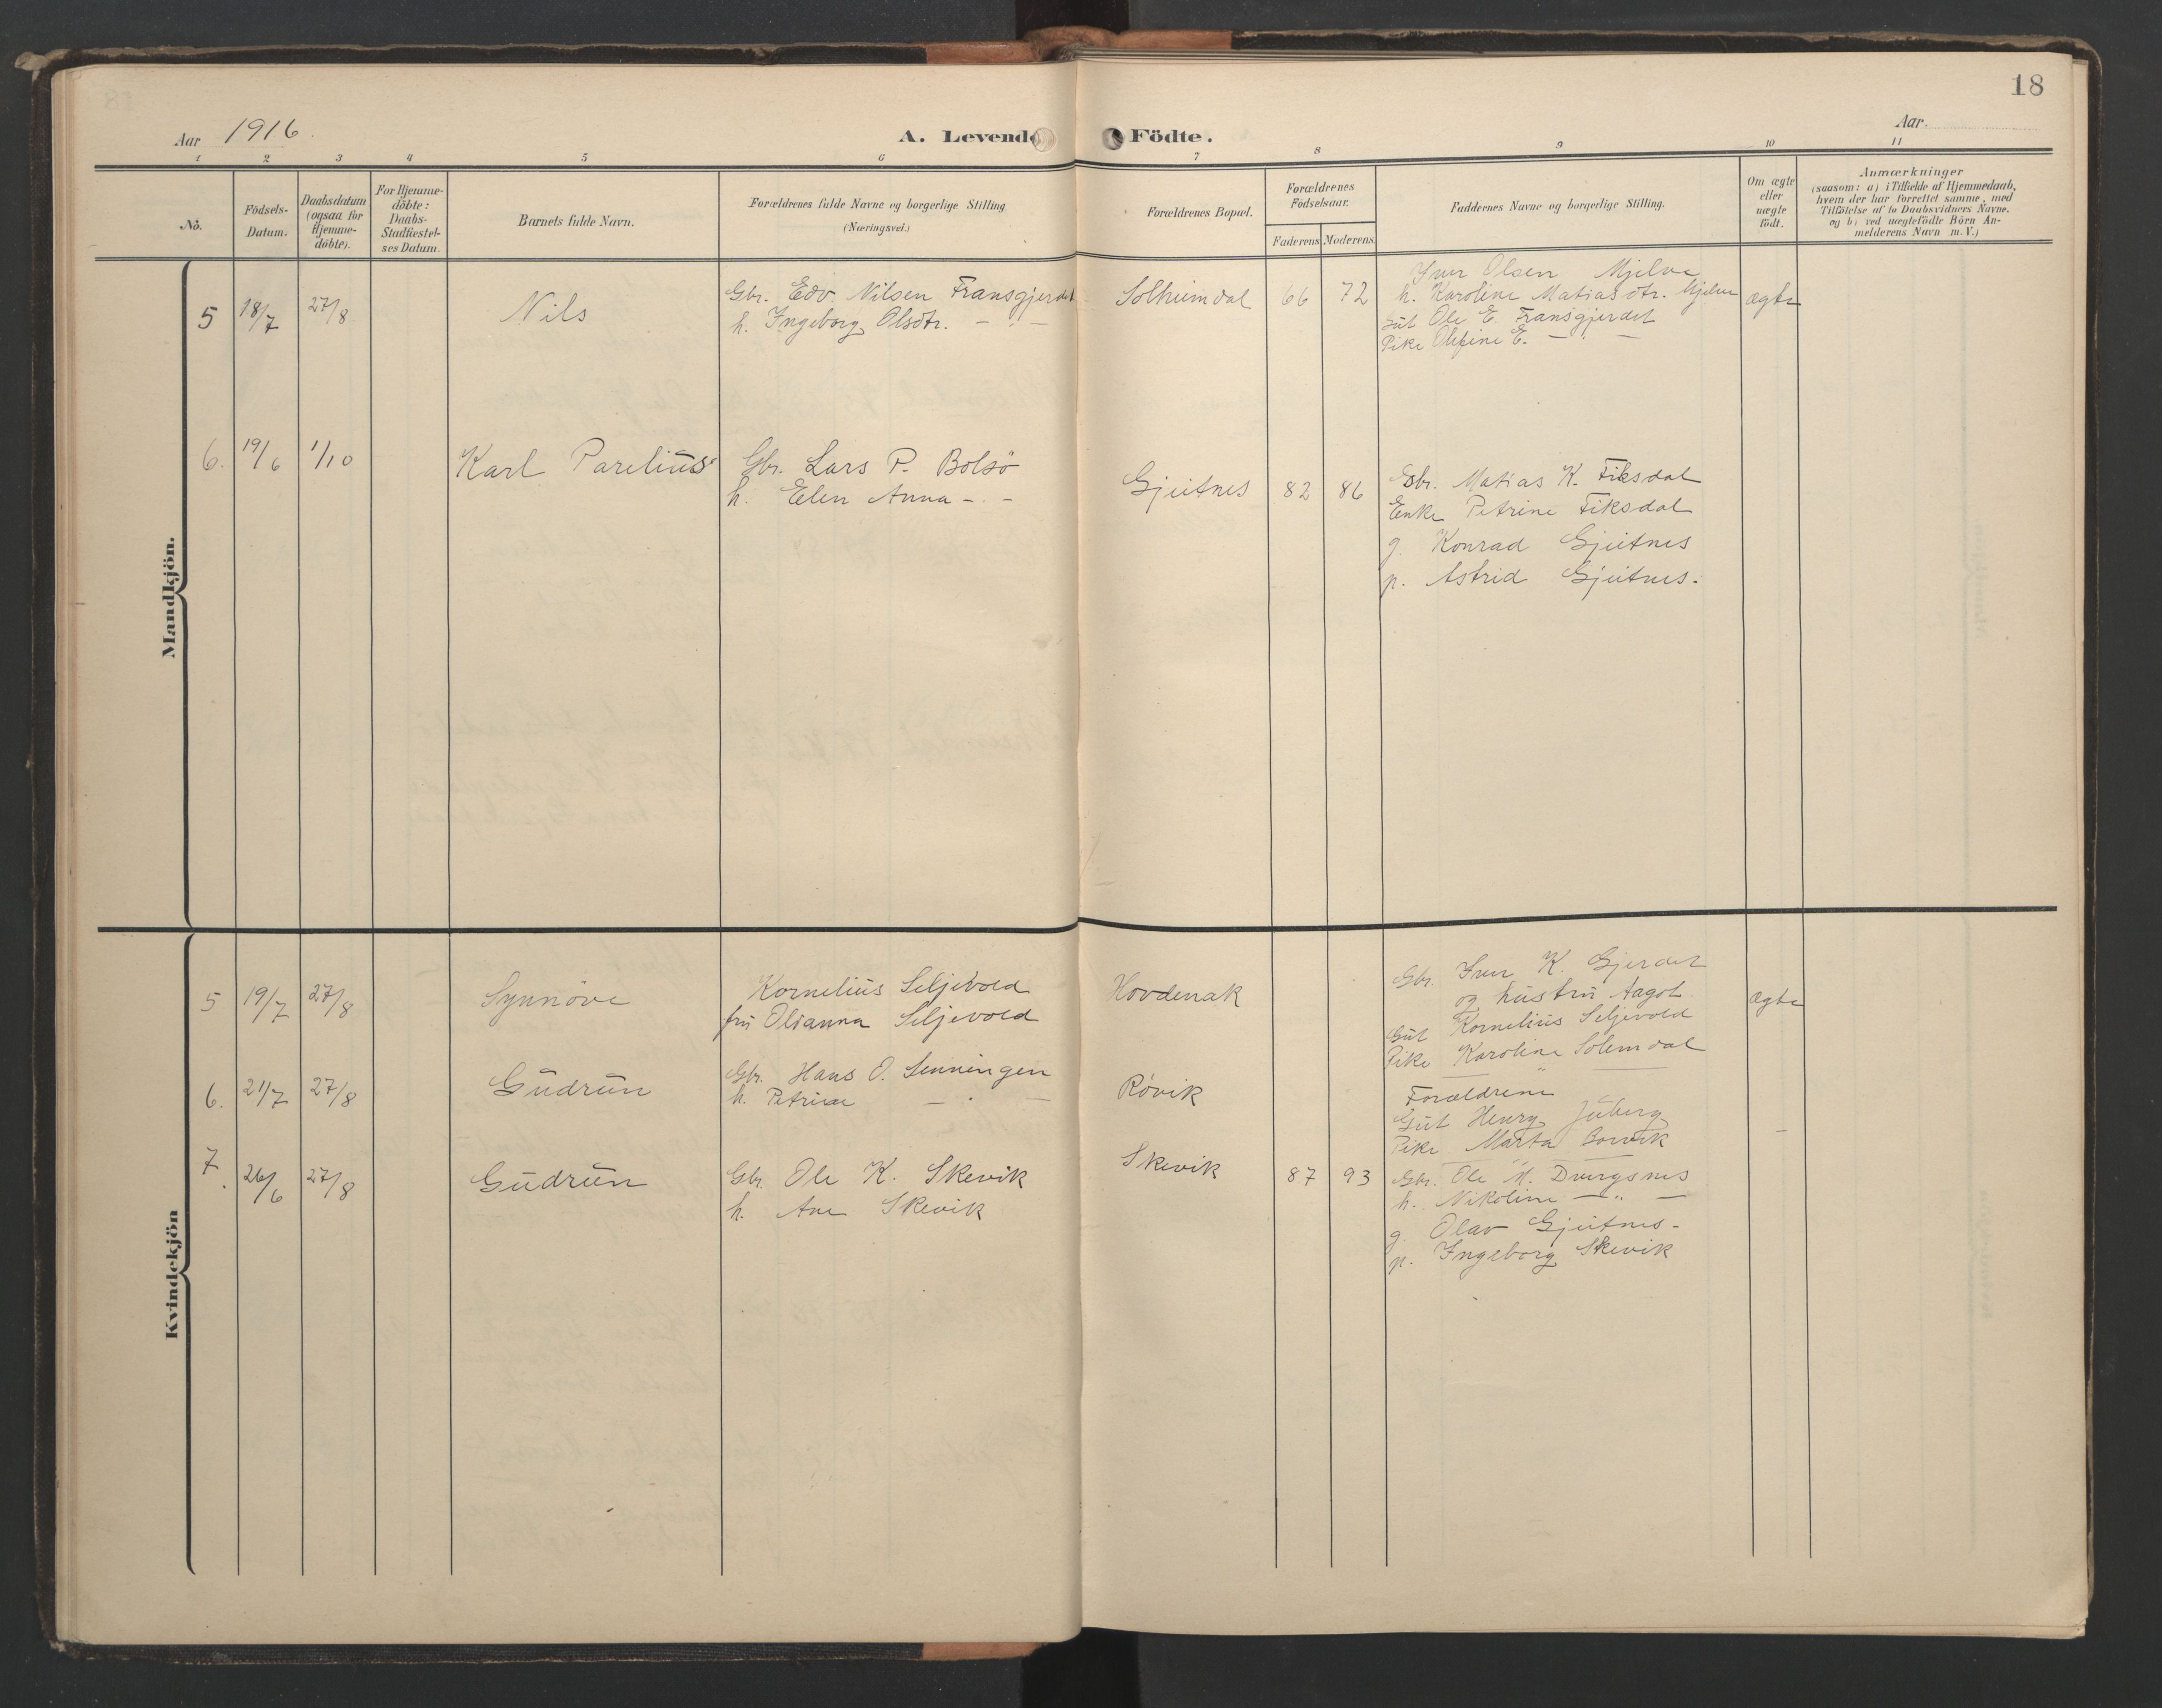 18
Aar 1916.
A. Levende Födte.
Aar.
1 2 3 4 5 6 7 8 9 10 11
No.
Födsels-Datum.
Daabsdatum (ogsaa for Hjemme-döbte).
For Hjemme-döbte: Daabs-Stadfæstel-ses Datum.
Barnets fulde Navn.
Forældrenes fulde Navne og borgerlige Stilling
(Næringsvei.)
Forældrenes Bopæl.
Forældrenes Födselsaar.
Faderens Moderens.
Faddernes Navne og borgerlige Stilling.
Om ægte eller uægte födt.
Anmærkninger
(saasom: a) i Tilfælde af Hjemmedaab,
hvem der har forrettet samme, med
Tilföielse af to Daabsvidners Navne.
og b) ved uægtefödte Börn An-
melderens Navn m. V.)
Mandkjön.
5 18/7 27/8 Nils
Gbr. Edv. Nilsen Fransgjerdet
h. Ingeborg Olsdtr. - " -
Solheimdal 66 72
Iver Olsen Mjelve
h. Karoline Matiasdtr. Mjelve
Gut Ole E. Fransgjerdet
Pike Olefine E. - " -
ægte
6. 19/6 1/10 Karl Parelius
Gbr. Lars P. Bolsö
h. Elen Anna - . -
Gjeitnes 82 86
Gbr. Matias K. Fiksdal
Enke Petrine Fiksdal
g. Konrad Gjeitnes
p. Astrid Gjeitnes.
Kvindekjön
5 19/7 27/8 Synnöve
Kornelius Seljevold
fru Olianna Seljevold
Hovdenak
Gbr. Iver K. Gjerdet
og hustru Aagot.
Gut Kornelius Seljevold
Pike Karoline Solemdal
ægte
6. 21/7 27/8 Gudrun
Gbr. Hans O. Lenningen
h. Petrine - " -
Rövik
Forældrene
Gut Henry Juberg
Pike Marta Rørvik
-
7. 26/6 27/8 Gudrun
Gbr. Ole K. Skevik
h. Ane Skevik
Skevik 87 93
Gbr. Ole M. Dvergsnes
h. Nikoline - " -
g. Olav Gjeitnes -
p. Ingeborg Skevik